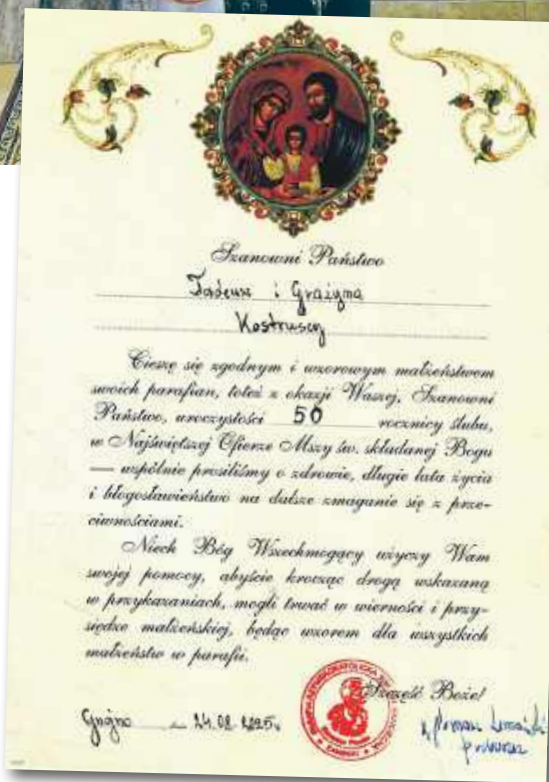 Szanowni Państwo
Tadeusz i Grażyna
Kostruscy
Cieszę się zgodnym i wzorowym małżeństwem
swoich parafian, toteż z okazji Waszej, Szanowni
Państwo, uroczystości 50 rocznicy ślubu,
w Najświętszej Ofierze Mszy św. składanej Bogu
— wspólnie prosiliśmy o zdrowie, długie lata życia
i błogosławieństwo na dalsze zmaganie się z prze-
ciwnościami.
Niech Bóg Wszechmogący użyczy Wam
swojej pomocy, abyście krocząc drogą wskazaną
w przykazaniach, mogli trwać w wierności i przy-
siędze małżeńskiej, będąc wzorem dla wszystkich
małżeństw w parafii.
Szczęść Boże!
24.08.2025